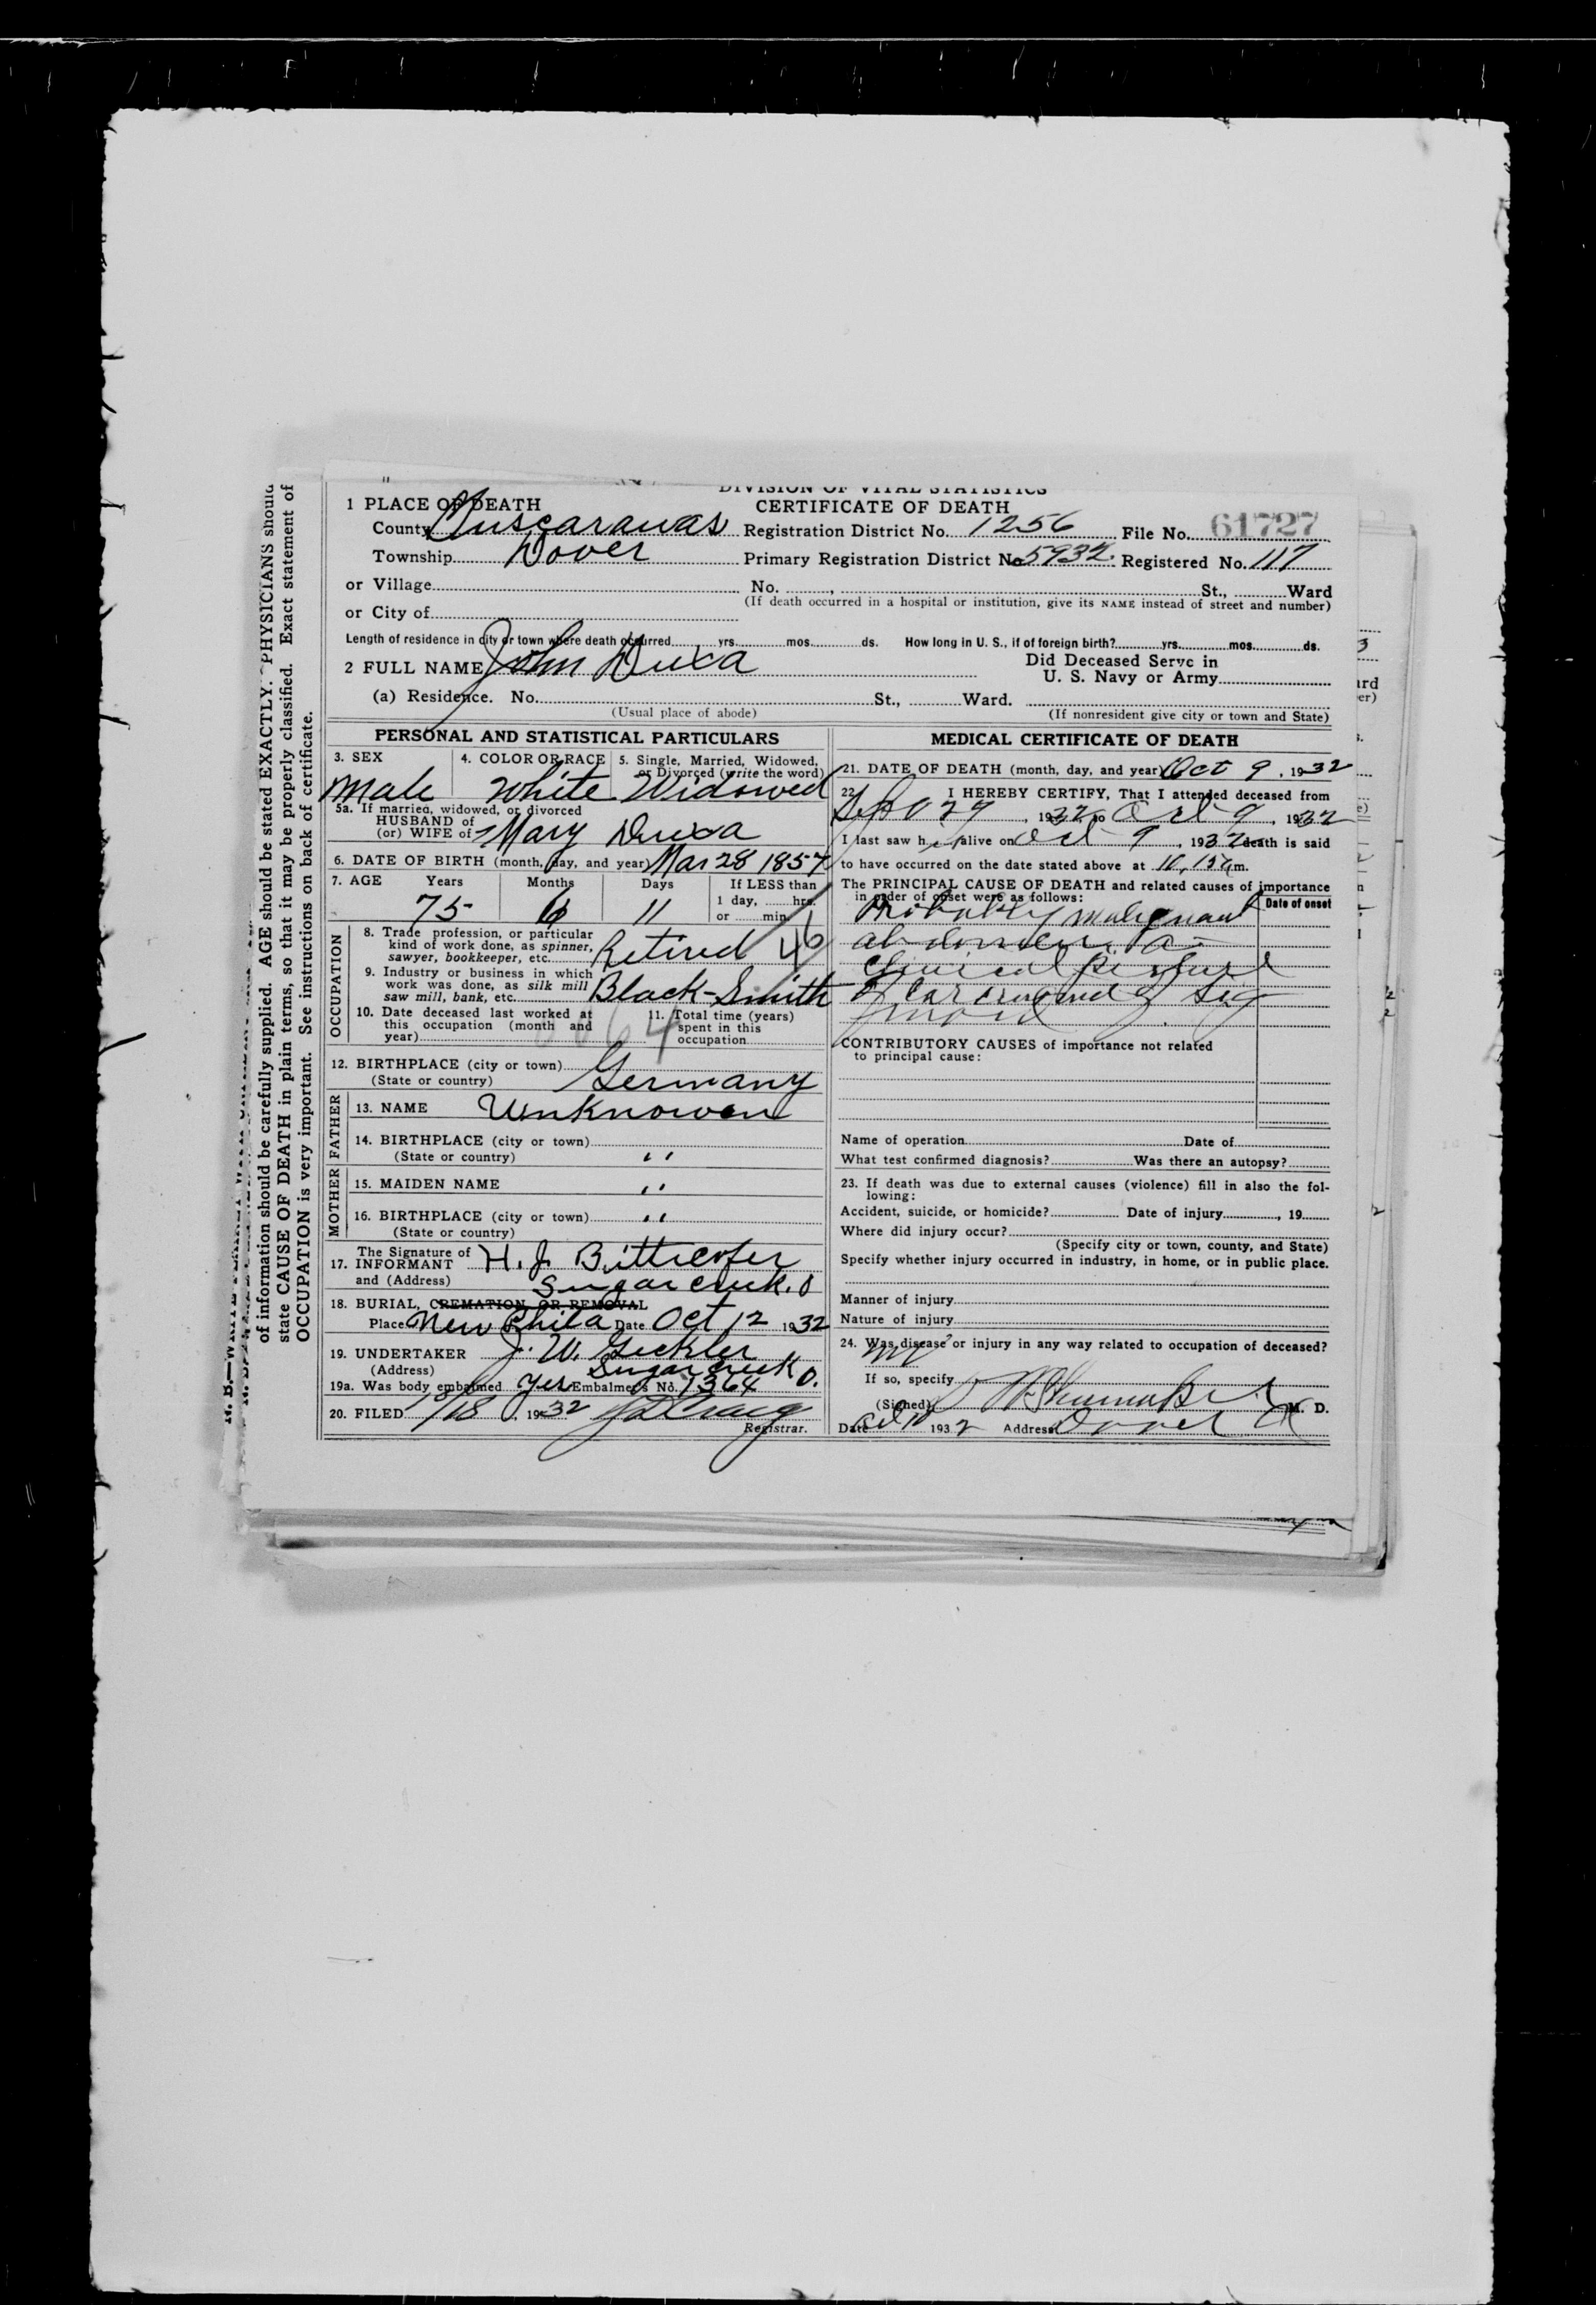 DIVISION OF VITAL STATISTICS
CERTIFICATE OF DEATH
1 PLACE OF DEATH
County Tuscarawas Registration District No. 1256 File No. 61727
Township Dover Primary Registration District No. 5932 Registered No. 117
or Village No. , St., Ward
(If death occurred in a hospital or institution, give its NAME instead of street and number)
or City of
Length of residence in city or town where death occurred yrs. mos. ds. How long in U. S., if of foreign birth? yrs. mos. ds.
2 FULL NAME John Duxa
Did Deceased Serve in
U. S. Navy or Army
(a) Residence. No. St., Ward.
(Usual place of abode) (If nonresident give city or town and State)
PERSONAL AND STATISTICAL PARTICULARS
3. SEX 4. COLOR OR RACE 5. Single, Married, Widowed,
or Divorced (write the word)
Male White Widowed
5a. If married, widowed, or divorced
HUSBAND of
(or) WIFE of Mary Duxa
6. DATE OF BIRTH (month, day, and year) Mar 28 1857
7. AGE Years Months Days If LESS than
1 day, hrs.
or min.
75 6 11
OCCUPATION
8. Trade profession, or particular
kind of work done, as spinner,
sawyer, bookkeeper, etc. Retired
9. Industry or business in which
work was done, as silk mill
saw mill, bank, etc. Black-Smith
10. Date deceased last worked at
this occupation (month and
year)
11. Total time (years)
spent in this
occupation
12. BIRTHPLACE (city or town)
(State or country) Germany
FATHER
13. NAME Unknowen
14. BIRTHPLACE (city or town)
(State or country) ,,
MOTHER
15. MAIDEN NAME ,,
16. BIRTHPLACE (city or town) ,,
(State or country)
17. The Signature of
INFORMANT H. J. Bittikofer
and (Address) Sugarcreek. O
18. BURIAL, CREMATION OR REMOVAL
Place New Phila Date Oct 12 1932
19. UNDERTAKER J. W. Geckler
(Address) Sugarcreek O.
19a. Was body embalmed yes Embalmer's No. 1364
20. FILED 10/18 , 1932 Craig
Registrar.
MEDICAL CERTIFICATE OF DEATH
21. DATE OF DEATH (month, day, and year) Oct 9 , 1932
22. I HEREBY CERTIFY, That I attended deceased from
Sept 29 , 1932 to Oct 9 , 1932
I last saw him alive on Oct 9 , 1932 death is said
to have occurred on the date stated above at 10,15 m.
The PRINCIPAL CAUSE OF DEATH and related causes of importance
in order of onset were as follows: Date of onset
Probably malignant
abdomen. a
clinical picture
of carcinoma of sig
moid
CONTRIBUTORY CAUSES of importance not related
to principal cause:
Name of operation Date of
What test confirmed diagnosis? Was there an autopsy?
23. If death was due to external causes (violence) fill in also the fol-
lowing:
Accident, suicide, or homicide? Date of injury , 19
Where did injury occur?
(Specify city or town, county, and State)
Specify whether injury occurred in industry, in home, or in public place.
Manner of injury
Nature of injury
24. Was disease or injury in any way related to occupation of deceased?
no
If so, specify
(Signed) Shumaker M. D.
Date Oct 10 1932 Address Dover O
of information should be carefully supplied. AGE should be stated EXACTLY. PHYSICIANS should
state CAUSE OF DEATH in plain terms, so that it may be properly classified. Exact statement of
OCCUPATION is very important. See instructions on back of certificate.